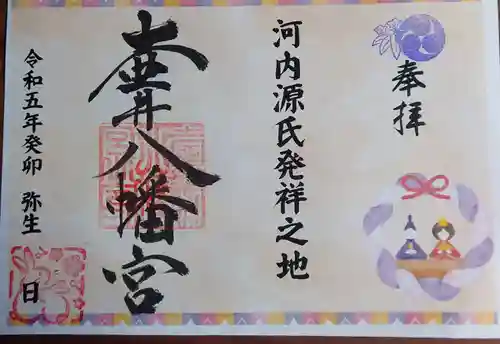 奉拝
河内源氏発祥之地
壷井八幡宮
令和五年癸卯 弥生
日